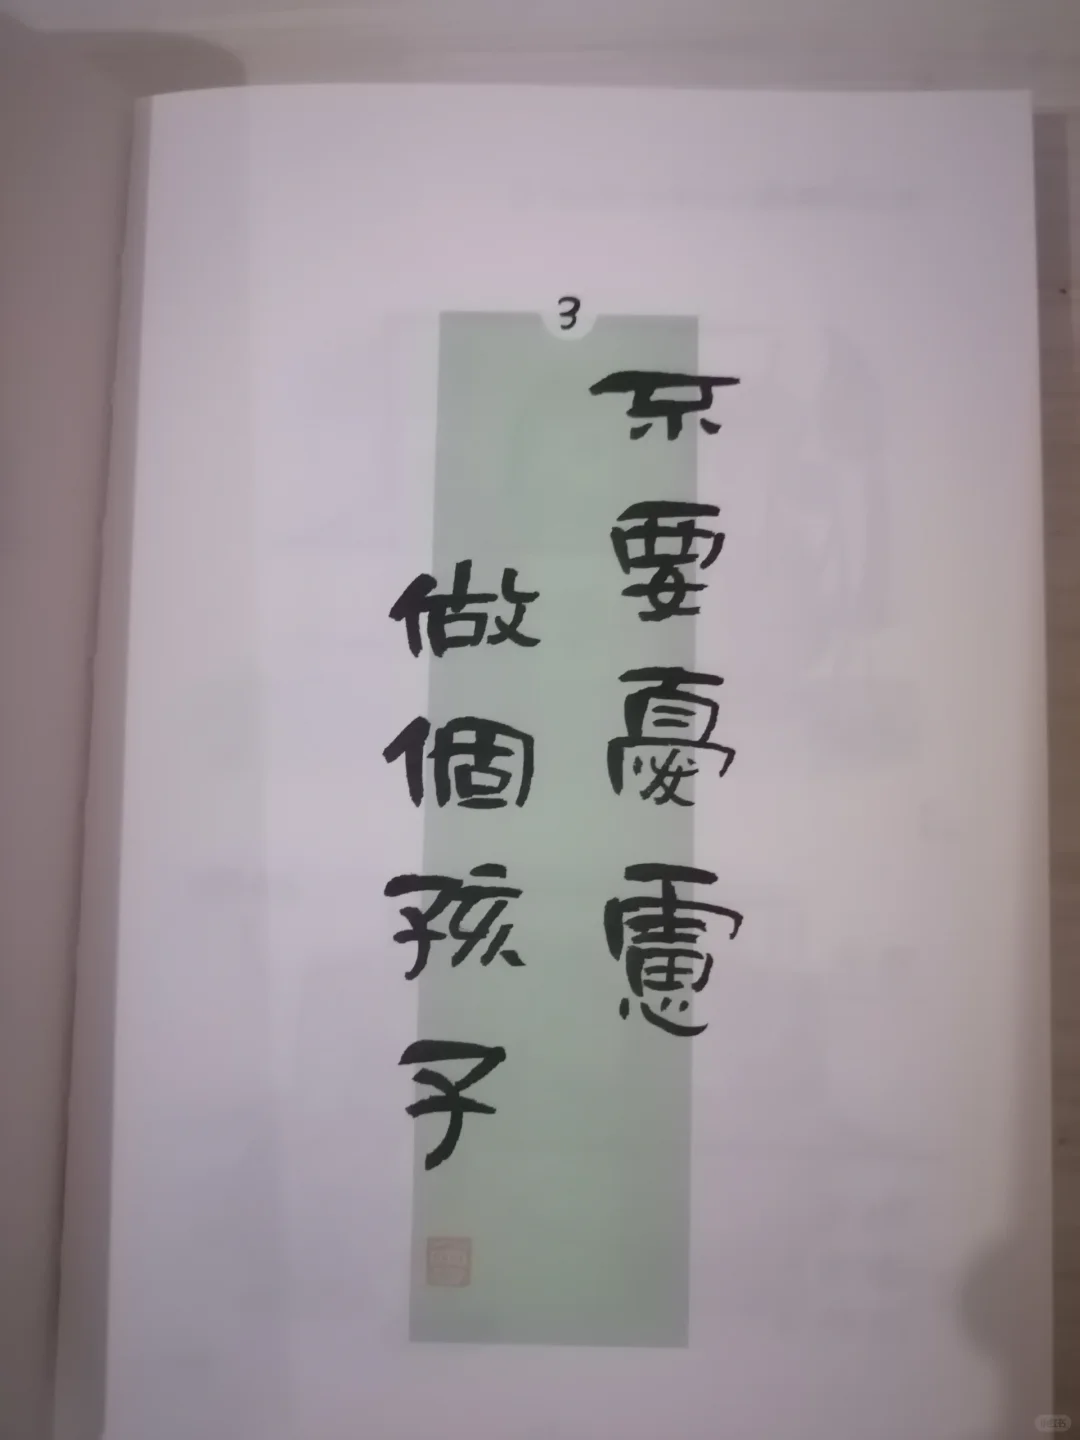 3
不要憂慮
做個孩子